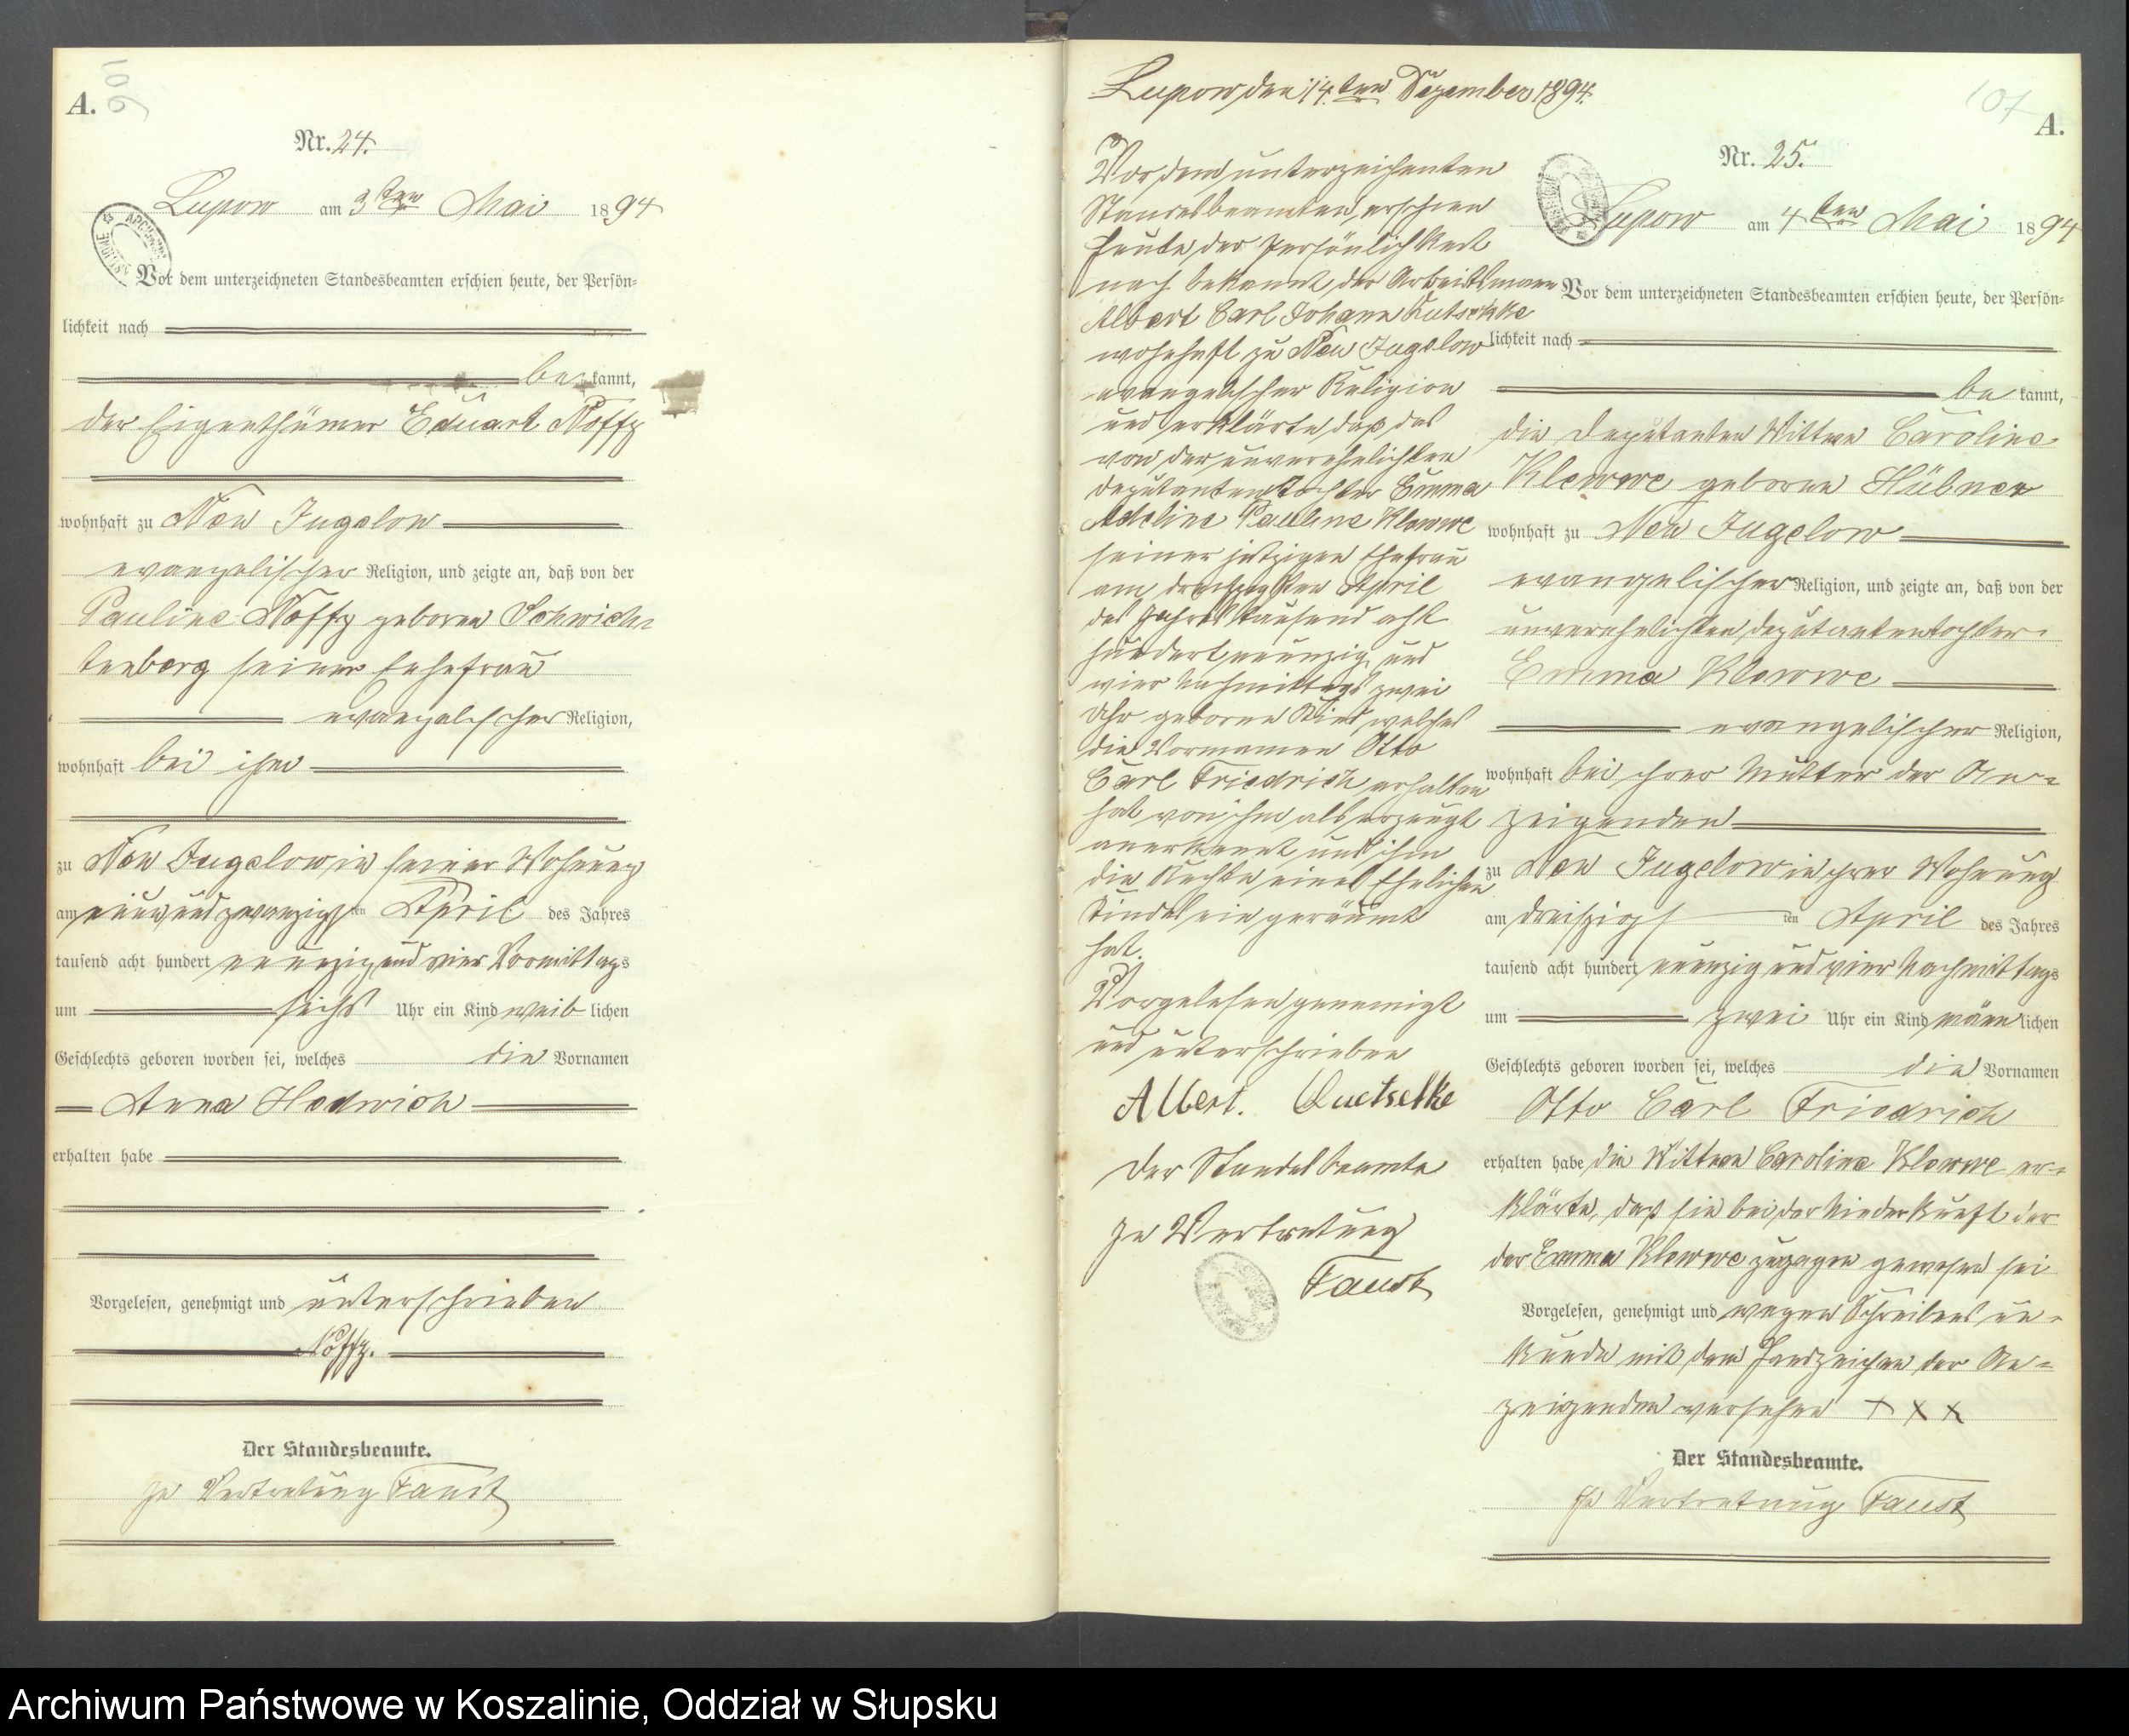 A.
106
Nr. 24.
Lupow am 3ten Mai 1894
Vor dem unterzeichneten Standesbeamten erschien heute, der Persön-
lichkeit nach
be kannt,
der Eigenthümer Eduart Noffz
wohnhaft zu Neu Jugelow
evangelischer Religion, und zeigte an, daß von der
Pauline Noffz geboren Schwich-
tenberg seiner Ehefrau
evangelischer Religion,
wohnhaft bei ihm
zu Neu Jugelow in seiner Wohnung
am neun und zwanzigsten April des Jahres
tausend acht hundert neunzig und vier Vormittags
um sechs Uhr ein Kind weib lichen
Geschlechts geboren worden sei, welches die Vornamen
Anna Hedwich
erhalten habe
Vorgelesen, genehmigt und unterschrieben
Noffz.
Der Standesbeamte.
In Vertretung Faust
Lupow, den 14ten Dezember 1894.
Vor dem unterzeichenten
Standesbeamten, erschien
heute, der Persönlichkeit
nach bekannt, der Arbeitsmann
Albert Carl Johann Kutschke
wohnhaft zu Neu Jugelow
evangelischer Religion
und erklärte, daß das
von der unverehelichten
Deputantentochter Emma
Adeline Pauline Klewwe
seiner jetzigen Ehefrau
am dreißigsten April
des Jahres tausend acht
hundert, neunzig und
vier Nachmittags zwei
Uhr geborene Kind welches
die Vornamen Otto
Carl Friedrich erhalten
hat von ihm als erzeugt
anerkannt und ihm
die Rechte eines Ehelichen
Kindes ein geräumt
hat.
Vorgelesen genemigt
und unterschrieben
Albert. Quetschke
Der Standesbeamte
In Vertretung
Faust
107
A.
Nr. 25.
Lupow am 4ten Mai 1894
Vor dem unterzeichneten Standesbeamten erschien heute, der Persön-
lichkeit nach
be kannt,
die Deputanten Wittwe Caroline
Klewwe geboren Hübner
wohnhaft zu Neu Jugelow
evangelischer Religion, und zeigte an, daß von der
unverehelichten Deputantentochter
Emma Klewwe
evangelischer Religion,
wohnhaft bei ihrer Mutter der An-
zeigenden
zu Neu Jugelow in ihrer Wohnung
am dreißigsten April des Jahres
tausend acht hundert neunzig und vier Nachmittags
um zwei Uhr ein Kind männ lichen
Geschlechts geboren worden sei, welches die Vornamen
Otto Carl Friedrich
erhalten habe die Wittwe Caroline Klewwe er-
klärte, daß sie bei der Niederkunft der
der Emma Klewwe zugegen gewesen sei
Vorgelesen, genehmigt und wegen Schreibens un-
kunde mit dem Handzeichen der An-
zeigenden versehen + x x
Der Standesbeamte.
In Vertretung Faust
Archiwum Państwowe w Koszalinie, Oddział w Słupsku